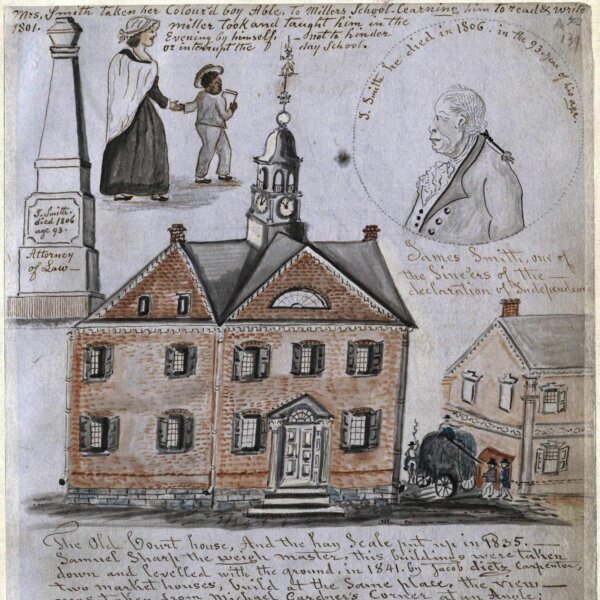 Mrs, Smith taken her Colour'd boy Able, to Millers School. Learning him to read & write
1801. Miller Took and taught him in the
Evening by himself. not to hinder
or interrupt the day School.
J. Smith he died in 1806. in the 93 year of his age.
J. Smith.
died 1806
age 93.
Attorney
of Law—
James Smith, one of
the Siners of the
declaration of Independen
The Old Court house, And the Hay Scale put up in 1835—
Samuel Sharp the weigh master— this buildings were taken
down and levelled with the ground, in 1841. by Jacob dietz Carpenter,
two market houses, build at the Same place. the view—
was taken from Michael Gardner's Corner at an Angle;